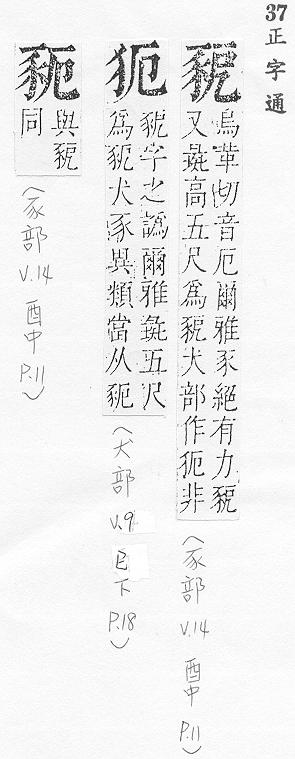 37正字通
烏革切音厄爾雅豕絕有力
又彘高五尺為 犬部作 非
(豕部 V.14 酉中 P.11)
字之譌爾雅彘五尺
為豟犬豕異類當从豟
(犬部 V.9 巳下 P.18)
豟
與
同
(豕部 V.14 酉中 P.11)